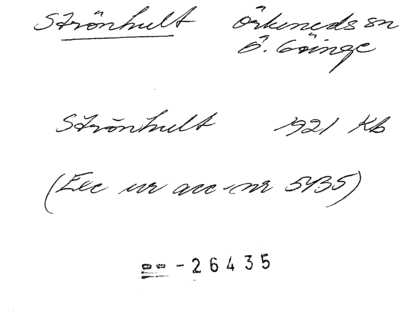 Strönhult Örkeneds sn
Ö. Göinge
Strönhult 1921 Kb
(Exc ur acc-nr 5935)
-26435